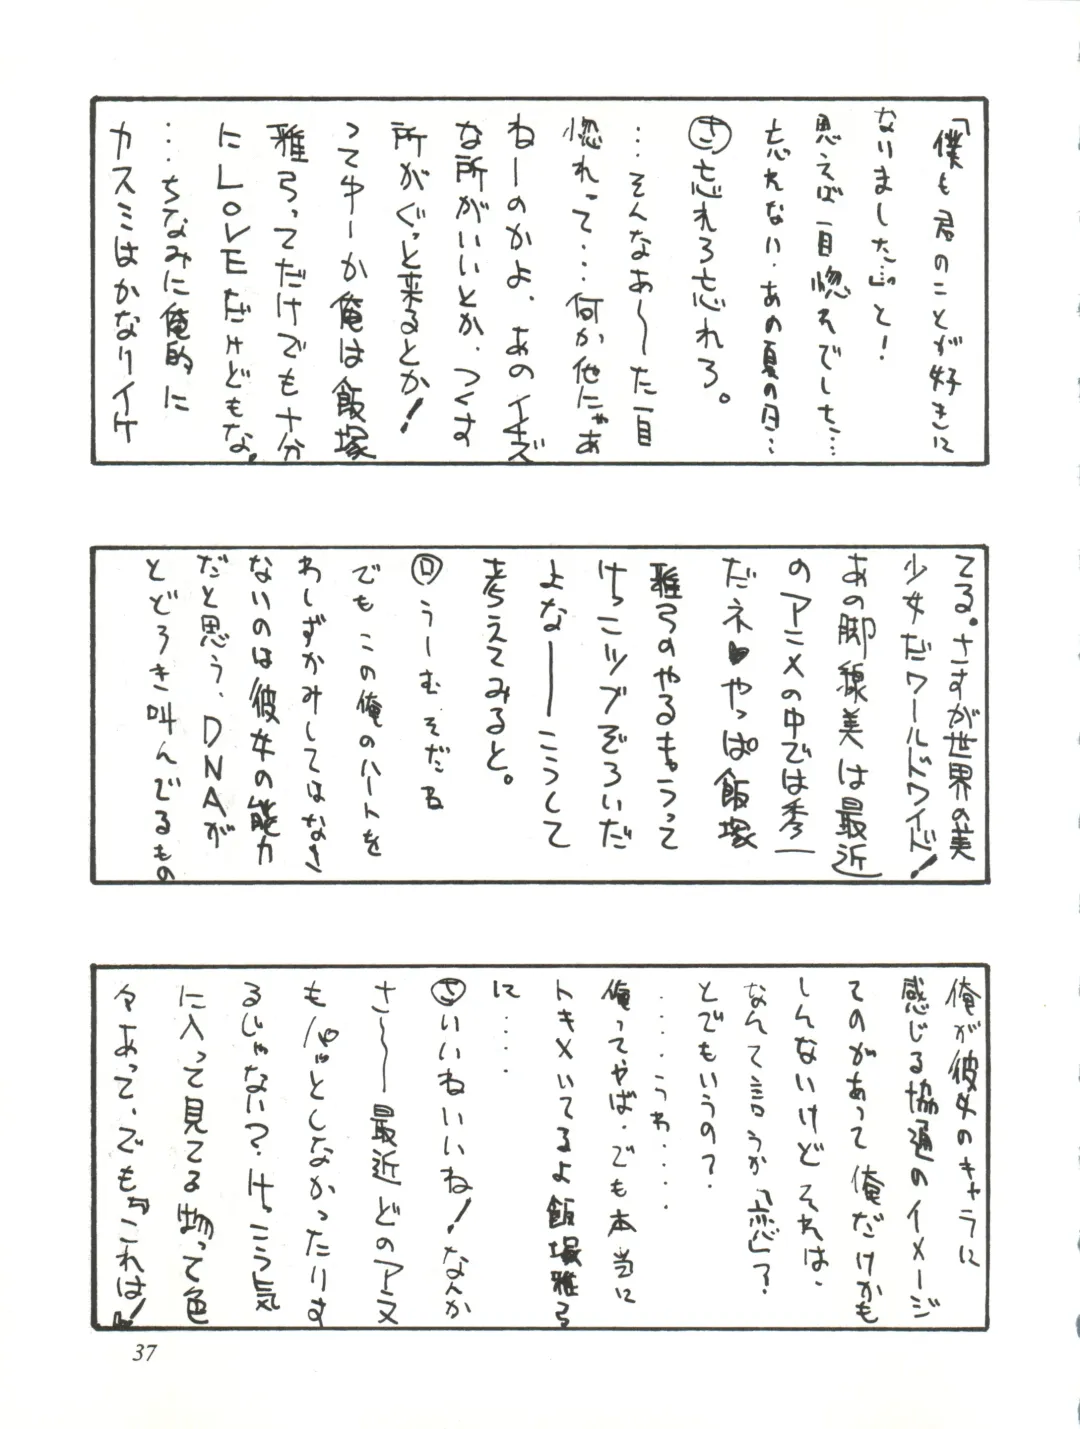 「僕も君のことが好きに
なりました…。」と！
思えば一目惚れでした…
忘れない・あの夏の日…
㋚忘れろ忘れろ。
…そんなあ〜った一目
惚れって…何か他にゃあ
ねーのかよ、あの
な所がいいとか、つくす
所がぐっと来るとか！
って牛ーか俺は飯塚
雅弓ってだけでも十分
にLOVEだけどもな。
…ちなみに俺的に
カスミはかなりイケ
てる。さすが世界の美
少女だワールドワイド！
あの脚線美は最近
のアニメの中では秀一
だネ♥やっぱ飯塚
雅弓のやるもうって
けっこツブぞろいだ
よなー──こうして
考えてみると。
㋺うーむそだな
でもこの俺のハートを
わしずかみしてはなさ
ないのは彼女の能力
だと思う、DNAが
とどろき叫んでるもの
俺が彼女のキャラに
感じる協通のイメージ
てのがあって俺だけかも
しんないけどそれは、
なんて言うか「恋」？
とでもいうの？
……うわ……
俺ってやば、でも本当に
トキメいてるよ飯塚雅弓
に……
㋚いいねいいね！なんか
さ〜〜最近どのアニメ
もパッとしなかったりす
るじゃない？けっこう気
に入って見てる物って色
々あって、でも『これは！